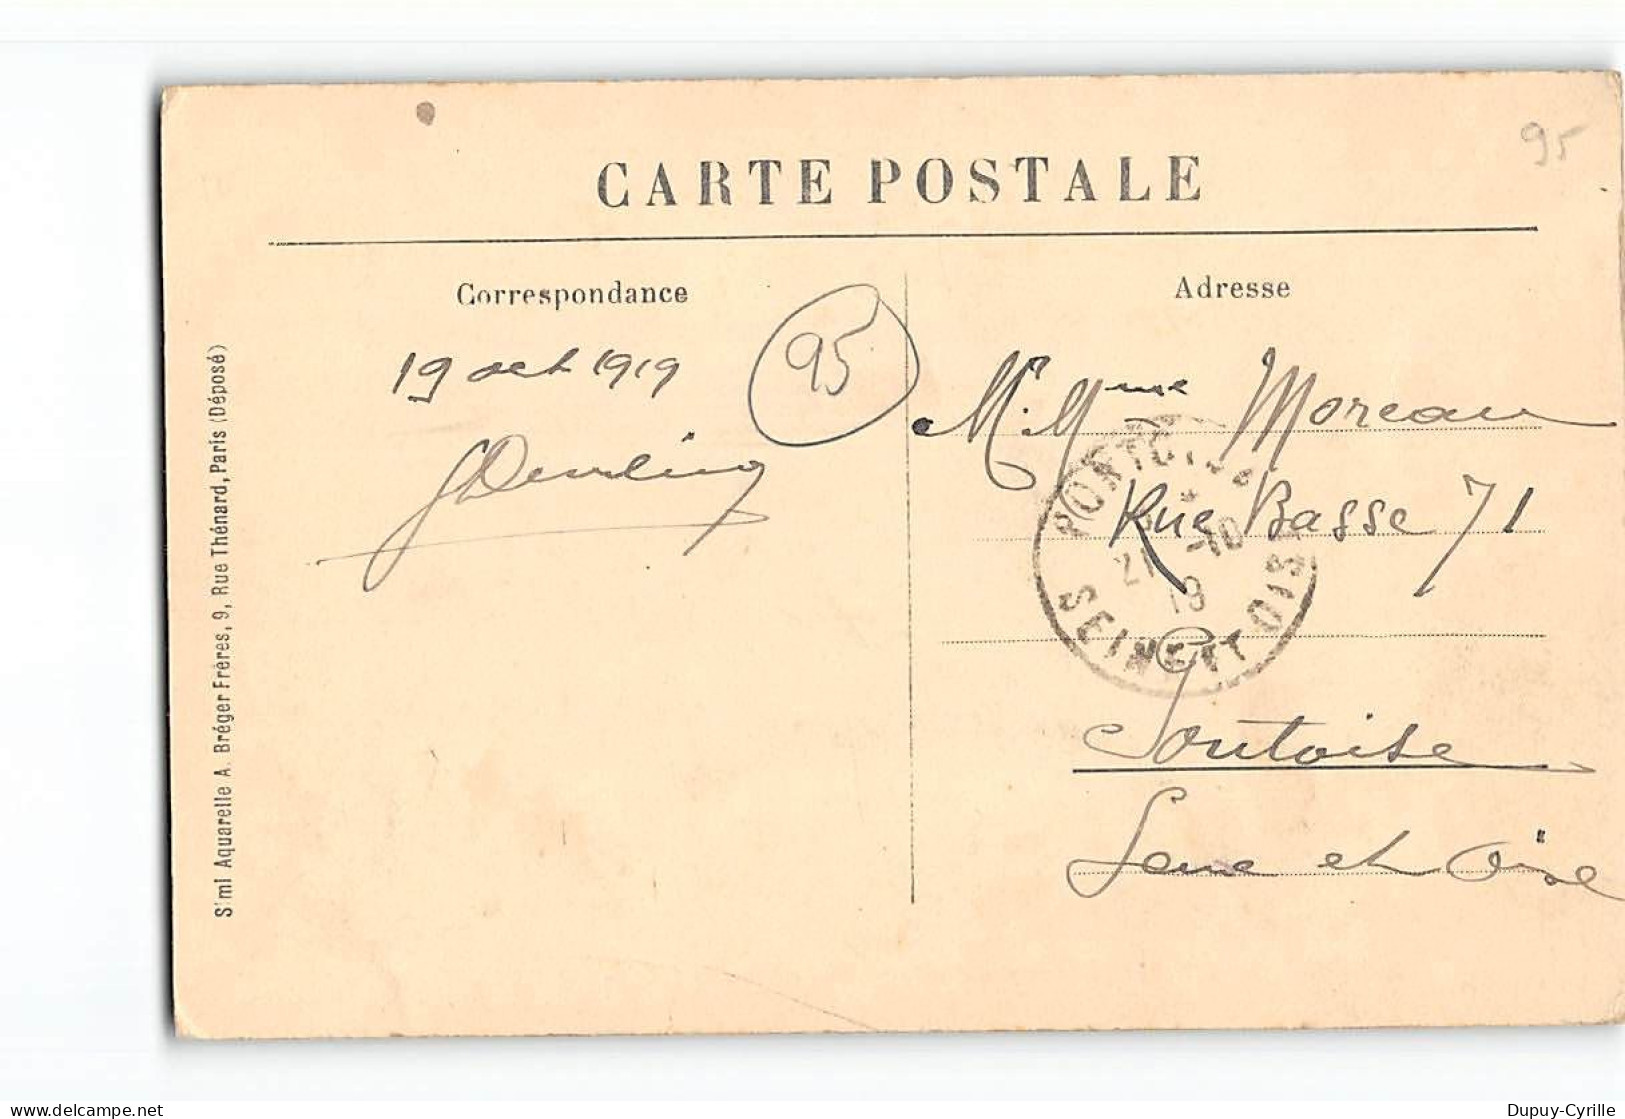 95
CARTE POSTALE
Correspondance
Adresse
19 oct 1919
95
M. Mme Moreau
Rue Basse 71
Pontoise
Seine et Oise
PONTOISE
*
21 -10
19
SEINE ET OISE
Simi Aquarelle A. Bréger Frères, 9, Rue Thénard, Paris (Déposé)
delcampe.net
Dupuy-Cyrille